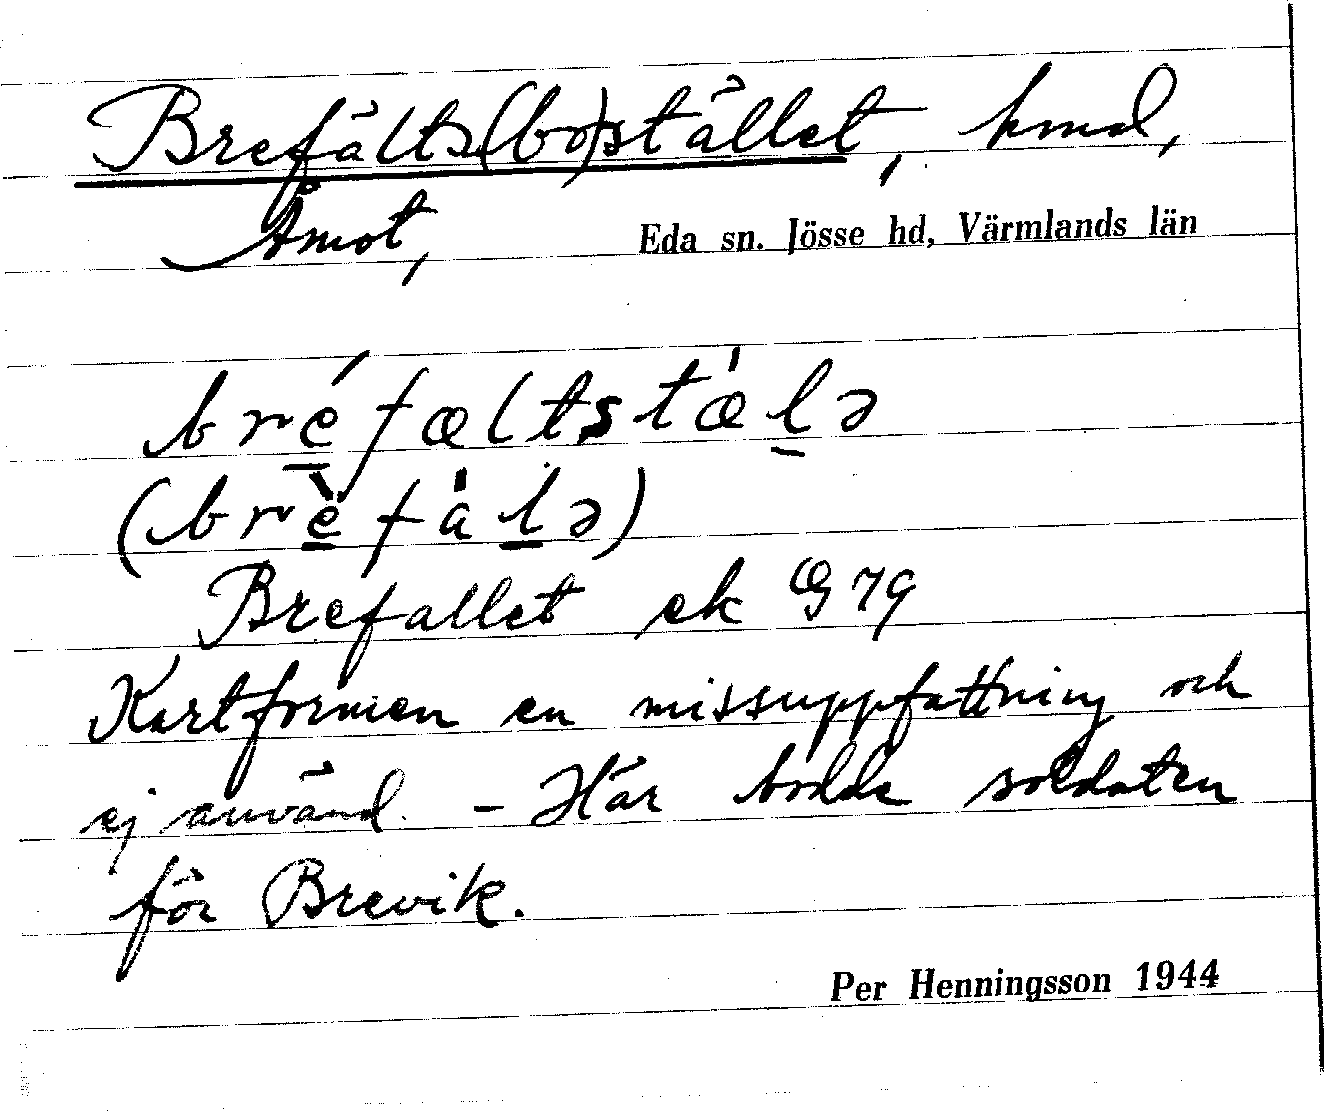 Brefälts(bo)stället, hmd,
Åmot, Eda sn. Jösse hd, Värmlands län
bréfæltstæ̍l̲ə
(brèfa̍l̲ə)
Brefallet ek G 79
Kartformen en missuppfattning och
ej använd. - Här bodde soldaten
för Brevik.
Per Henningsson 1944